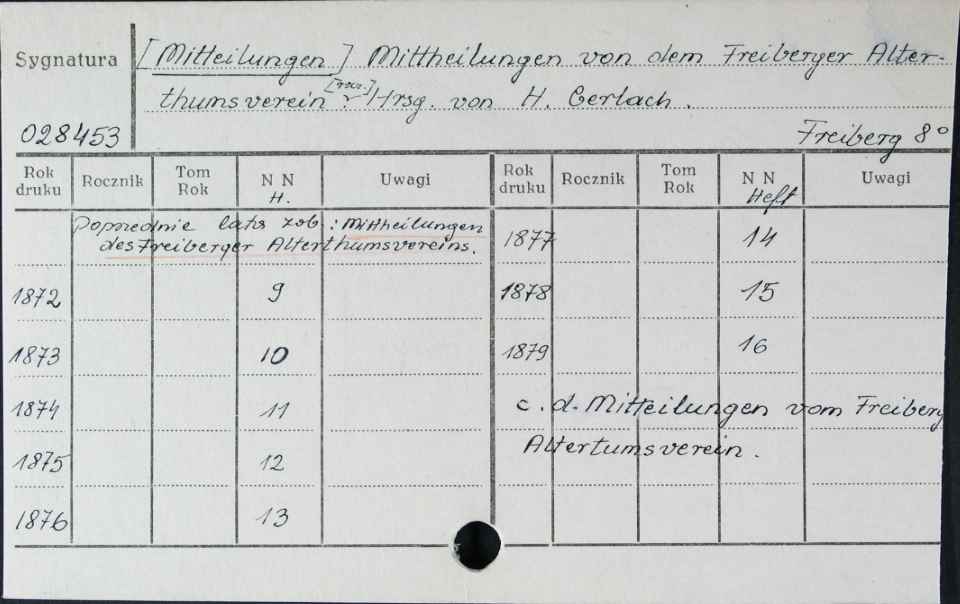 Sygnatura
[Mitteilungen] Mittheilungen von dem Freiberger Alter-
thumsverein. Hrsg. von H. Gerlach.
028453
Freiberg 8°
Rok druku Rocznik Tom Rok N N H. Uwagi Rok druku Rocznik Tom Rok N N Heft Uwagi
Poprzednie lata zob.: Mittheilungen
des Freiberger Alterthumsvereins.
1872 9
1873 10
1874 11
1875 12
1876 13
1877 14
1878 15
1879 16
c.d. Mitteilungen vom Freiberg
Altertumsverein.